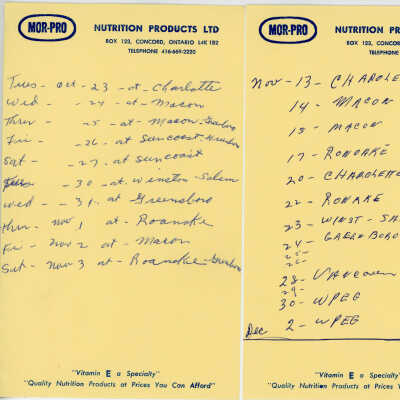 MOR-PRO
NUTRITION PRODUCTS LTD
BOX 123, CONCORD, ONTARIO L4K 1B2
TELEPHONE 416-669-2220
Tues - Oct - 23 - at - Charlotte
Wed - - 24 - at - Macon
Thur - - 25 - at - Macon -
Fri - - 26 - at Suncoast -
Sat - - 27 - at Suncoast
Tues - 30 - at - Winston - Salem
Wed - - 31 - at Greensboro
Thur - Nov 1 at - Roanoke
Fri - Nov 2 at - Macon
Sat - Nov 3 at - Roanoke - Greensboro
"Vitamin E a Specialty"
"Quality Nutrition Products at Prices You Can Afford"
MOR-PRO
NUTRITION PRODU
BOX 123, CONCORD, ON
TELEPHONE
Nov - 13 - CHARLO
14 - MACON
15 - MACON
17 - ROANOKE
20 - CHARLOTTE
22 - ROANOKE
23 - WINST - SA
24 - GREENBORO
25 -
26 -
28 - VANCOUVER
29 -
30 - WPEG
Dec 2 - WPEG
"Vitamin E a S
"Quality Nutrition Products at